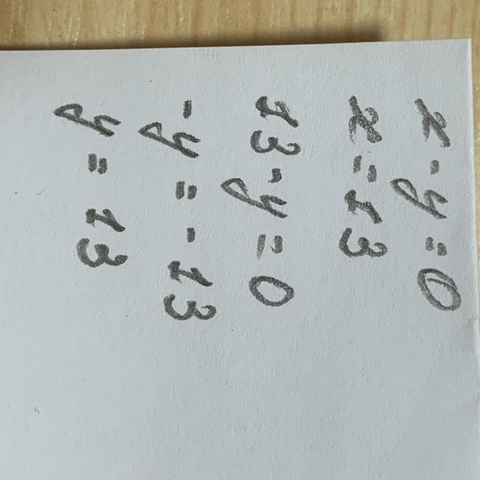 x-y=0
x=13
13-y=0
-y=-13
y=13